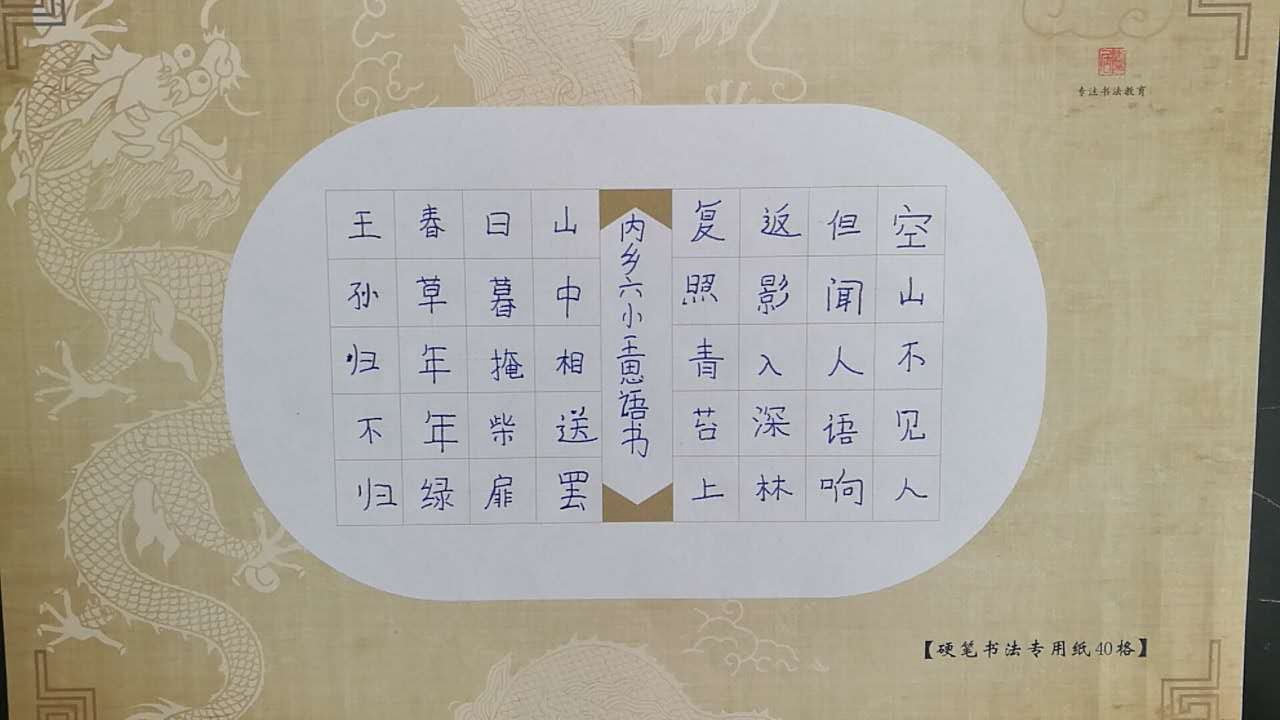 专注书法教育
空山不见人
但闻人语响
返影入深林
复照青苔上
内乡六小王思语书
山中相送罢
日暮掩柴扉
春草年年绿
王孙归不归
【硬笔书法专用纸40格】